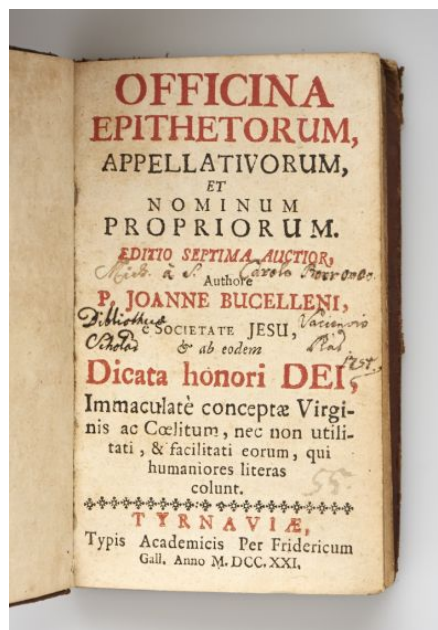 OFFICINA
EPITHETORUM,
APPELLATIVORUM,
ET
NOMINUM
PROPRIORUM.
EDITIO SEPTIMA AUCTIOR,
Mich. à S. Carolo Borromeo
Authore
P. JOANNE BUCELLENI,
Bibliotheca
è SOCIETATE JESU,
Scholar
& ab eodem
1751,
Dicata honori DEI,
Immaculatè conceptæ Virgi-
nis ac Cœlitum, nec non utili-
tati, & facilitati eorum, qui
humaniores literas
colunt.
55.
TYRNAVIÆ,
Typis Academicis Per Fridericum
Gall. Anno M. DCC. XXI.